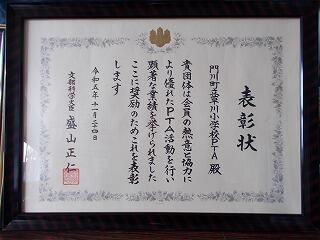 表彰状
門川町立草川小学校PTA 殿
貴団体は会員の熱意と協力に
より優れたPTA活動を行い
顕著な業績を挙げられました
ここに奨励のためこれを表彰
します
令和五年十一月二十四日
文部科学大臣 盛山正仁